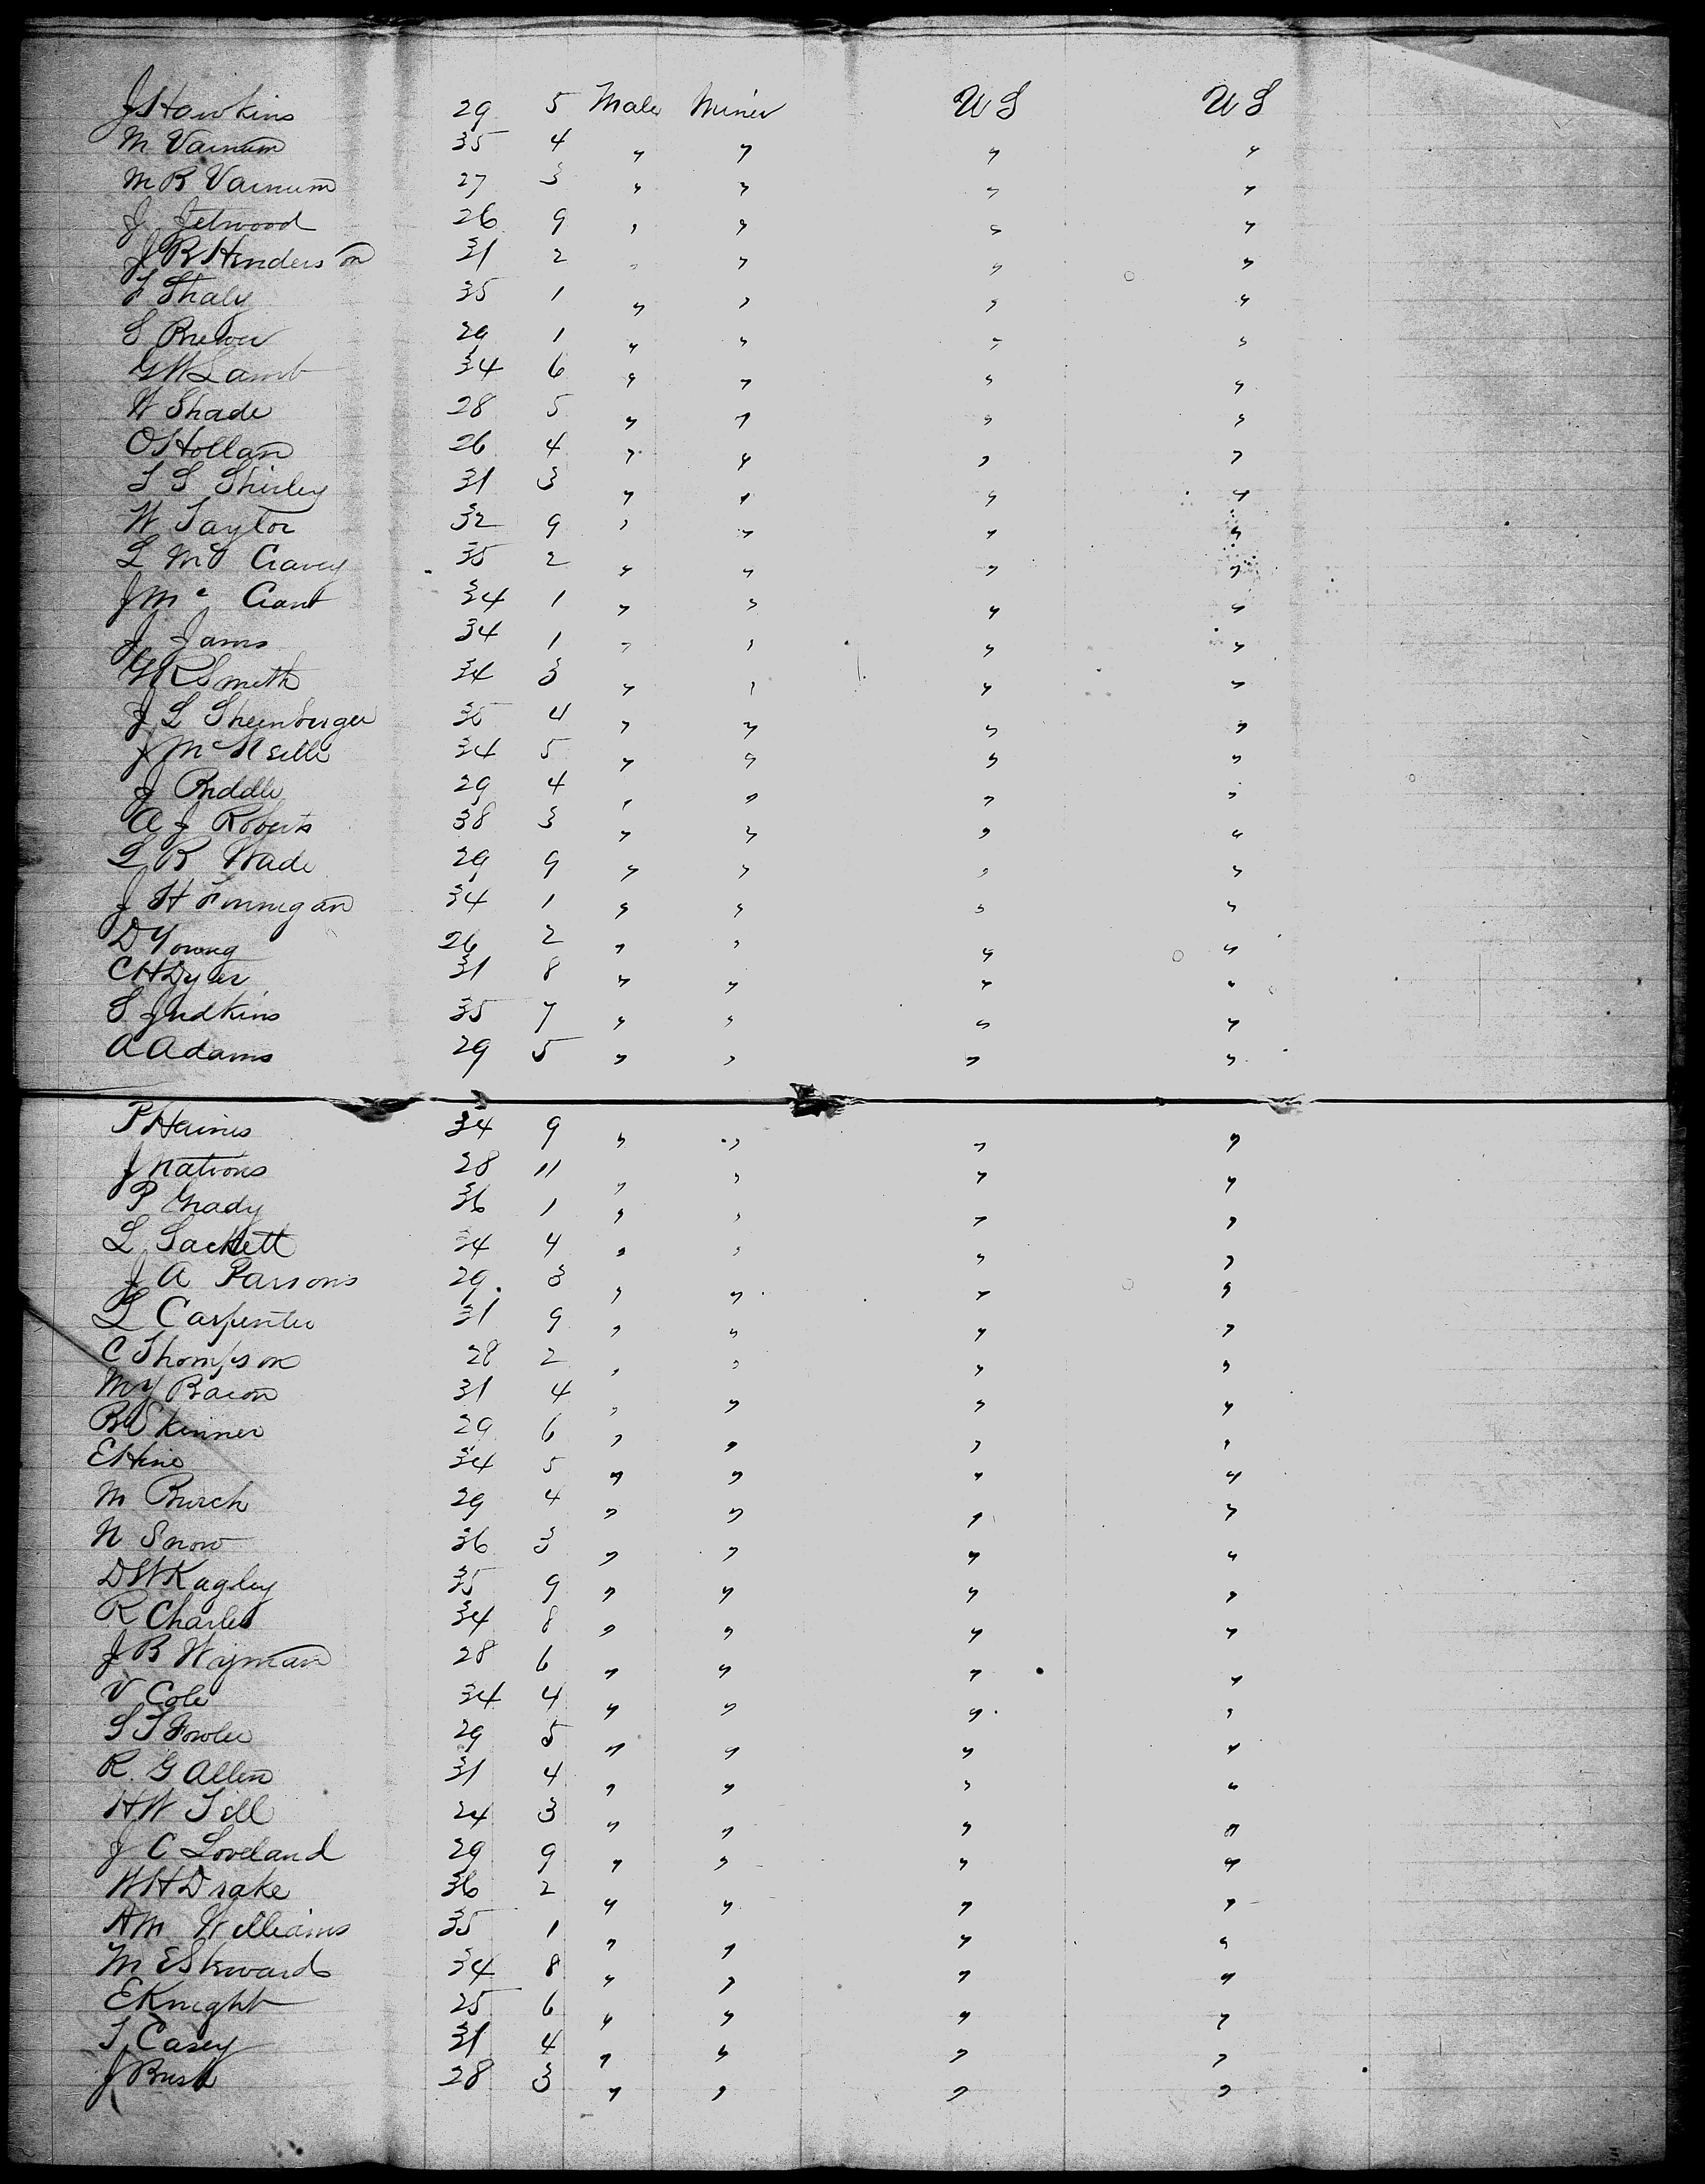 J Hawkins 29 5 Male Miner U S U S
M Varnum 35 4 " " " "
M B Varnum 27 3 " " " "
J Jetwood 26 9 " " " "
J B Henderson 31 2 " " " "
F Shaly 35 1 " " " "
S Brewer 29 1 " " " "
G W Lamb 34 6 " " " "
W Shade 28 5 " " " "
O Hollan 26 4 " " " "
T S Shirley 31 3 " " " "
W Taylor 32 9 " " " "
L Mc Cravey 35 2 " " " "
J Mc Cant 34 1 " " " "
J Jams 34 1 " " " "
G R Smith 34 3 " " " "
J L Sheenburger 35 4 " " " "
J McNeille 34 5 " " " "
J Riddle 29 4 " " " "
A J Roberts 38 3 " " " "
L R Wade 29 9 " " " "
J H Finnigan 34 1 " " " "
D Young 26 2 " " " "
C H Dyer 31 8 " " " "
S Judkins 35 7 " " " "
A Adams 29 5 " " " "
P Haines 34 9 " " " "
J Nations 28 11 " " " "
P Grady 36 1 " " " "
L Sackett 34 4 " " " "
J A Parsons 29 3 " " " "
L Carpenter 31 9 " " " "
C Thompson 28 2 " " " "
M Y Bacon 31 4 " " " "
B Skinner 29 6 " " " "
E Hine 34 5 " " " "
M Burch 29 4 " " " "
N Snow 36 3 " " " "
D W Kagley 35 9 " " " "
R Charles 34 8 " " " "
J B Wyman 28 6 " " " "
V Cole 34 4 " " " "
S T Fowler 29 5 " " " "
R. G Allen 31 4 " " " "
H W Till 24 3 " " " "
J C Loveland 29 9 " " " "
W H Drake 36 2 " " " "
A M Williams 35 1 " " " "
M E Stewards 34 8 " " " "
E Knight 25 6 " " " "
T Casey 31 4 " " " "
J Bush 28 3 " " " "